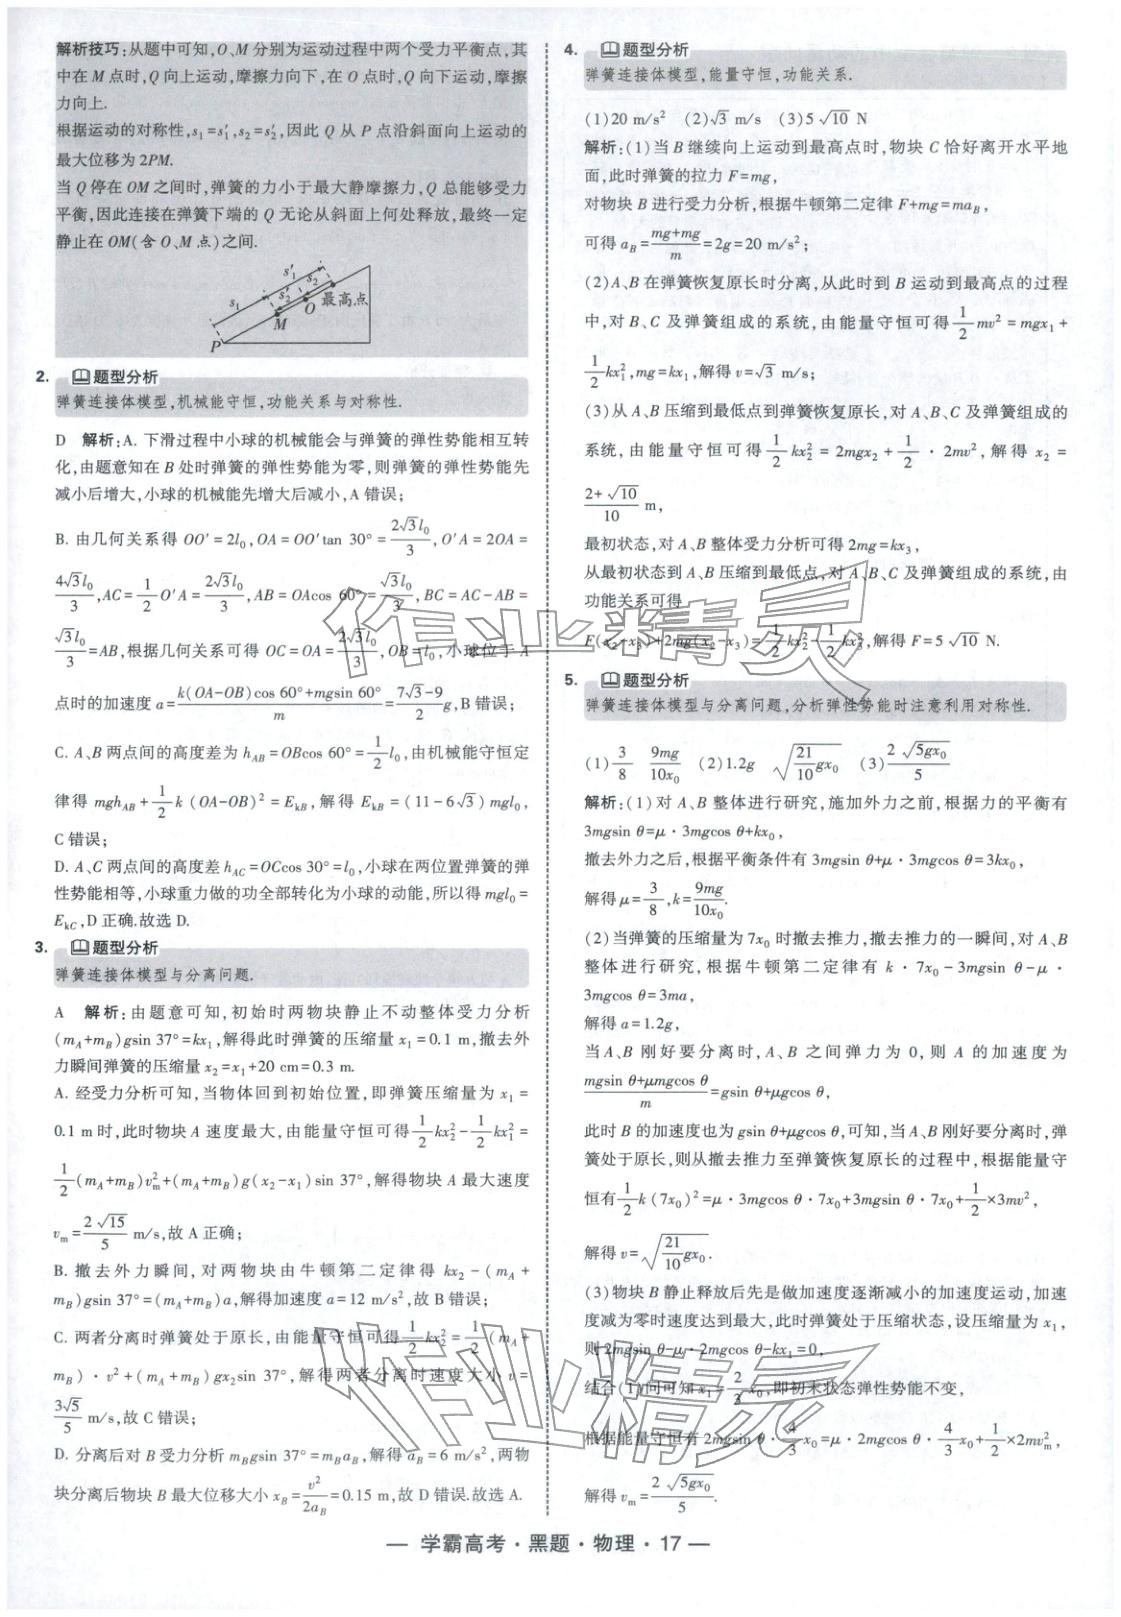 解析技巧:从题中可知,O、M 分别为运动过程中两个受力平衡点,其
中在 M 点时,Q 向上运动,摩擦力向下,在 O 点时,Q 向下运动,摩擦
力向上.
根据运动的对称性,s₁=s₁′,s₂=s₂′,因此 Q 从 P 点沿斜面向上运动的
最大位移为 2PM.
当 Q 停在 OM 之间时,弹簧的力小于最大静摩擦力,Q 总能够受力
平衡,因此连接在弹簧下端的 Q 无论从斜面上何处释放,最终一定
静止在 OM(含 O、M 点)之间.
s₁′
s₁ s₂′ s₂
最高点
O
M
P
2. 题型分析
弹簧连接体模型,机械能守恒,功能关系与对称性.
D 解析:A. 下滑过程中小球的机械能会与弹簧的弹性势能相互转
化,由题意知在 B 处时弹簧的弹性势能为零,则弹簧的弹性势能先
减小后增大,小球的机械能先增大后减小,A 错误;
B. 由几何关系得 OO′=2l₀,OA=OO′tan 30°=2√3l₀/3,O′A=2OA=
4√3l₀/3,AC=1/2 O′A=2√3l₀/3,AB=OAcos 60°=√3l₀/3,BC=AC-AB=
√3l₀/3=AB,根据几何关系可得 OC=OA=2√3l₀/3,OB=l₀,小球位于 A
点时的加速度 a=[k(OA-OB)cos 60°+mgsin 60°]/m=(7√3-9)/2 g,B 错误;
C. A、B 两点间的高度差为 h_AB=OBcos 60°=1/2 l₀,由机械能守恒定
律得 mgh_AB+1/2 k (OA-OB)²=E_kB,解得 E_kB=(11-6√3)mgl₀,
C 错误;
D. A、C 两点间的高度差 h_AC=OCcos 30°=l₀,小球在两位置弹簧的弹
性势能相等,小球重力做的功全部转化为小球的动能,所以得 mgl₀=
E_kC,D 正确.故选 D.
3. 题型分析
弹簧连接体模型与分离问题.
A 解析:由题意可知,初始时两物块静止不动整体受力分析
(m_A+m_B)gsin 37°=kx₁,解得此时弹簧的压缩量 x₁=0.1 m,撤去外
力瞬间弹簧的压缩量 x₂=x₁+20 cm=0.3 m.
A. 经受力分析可知,当物体回到初始位置,即弹簧压缩量为 x₁=
0.1 m 时,此时物块 A 速度最大,由能量守恒可得 1/2 kx₂²-1/2 kx₁²=
1/2 (m_A+m_B)v_m²+(m_A+m_B)g(x₂-x₁)sin 37°,解得物块 A 最大速度
v_m=2√15/5 m/s,故 A 正确;
B. 撤去外力瞬间,对两物块由牛顿第二定律得 kx₂-(m_A+
m_B)gsin 37°=(m_A+m_B)a,解得加速度 a=12 m/s²,故 B 错误;
C. 两者分离时弹簧处于原长,由能量守恒可得 1/2 kx₂²=1/2 (m_A+
m_B)·v²+(m_A+m_B)gx₂sin 37°,解得两者分离时速度大小 v=
3√5/5 m/s,故 C 错误;
D. 分离后对 B 受力分析 m_Bgsin 37°=m_Ba_B,解得 a_B=6 m/s²,两物
块分离后物块 B 最大位移大小 x_B=v²/2a_B=0.15 m,故 D 错误.故选 A.
4. 题型分析
弹簧连接体模型,能量守恒,功能关系.
(1)20 m/s² (2)√3 m/s (3)5√10 N
解析:(1)当 B 继续向上运动到最高点时,物块 C 恰好离开水平地
面,此时弹簧的拉力 F=mg,
对物块 B 进行受力分析,根据牛顿第二定律 F+mg=ma_B,
可得 a_B=(mg+mg)/m=2g=20 m/s²;
(2)A、B 在弹簧恢复原长时分离,从此时到 B 运动到最高点的过程
中,对 B、C 及弹簧组成的系统,由能量守恒可得 1/2 mv²=mgx₁+
1/2 kx₁²,mg=kx₁,解得 v=√3 m/s;
(3)从 A、B 压缩到最低点到弹簧恢复原长,对 A、B、C 及弹簧组成的
系统,由能量守恒可得 1/2 kx₂²=2mgx₂+1/2·2mv²,解得 x₂=
(2+√10)/10 m,
最初状态,对 A、B 整体受力分析可得 2mg=kx₃,
从最初状态到 A、B 压缩到最低点,对 A、B、C 及弹簧组成的系统,由
功能关系可得
F(x₂-x₃)+2mg(x₂-x₃)=1/2 kx₂²-1/2 kx₃²,解得 F=5√10 N.
5. 题型分析
弹簧连接体模型与分离问题,分析弹性势能时注意利用对称性.
(1)3/8 9mg/10x₀ (2)1.2g √(21/10 gx₀) (3)2√(5gx₀)/5
解析:(1)对 A、B 整体进行研究,施加外力之前,根据力的平衡有
3mgsin θ=μ·3mgcos θ+kx₀,
撤去外力之后,根据平衡条件有 3mgsin θ+μ·3mgcos θ=3kx₀,
解得 μ=3/8,k=9mg/10x₀.
(2)当弹簧的压缩量为 7x₀ 时撤去推力,撤去推力的一瞬间,对 A、B
整体进行研究,根据牛顿第二定律有 k·7x₀-3mgsin θ-μ·
3mgcos θ=3ma,
解得 a=1.2g,
当 A、B 刚好要分离时,A、B 之间弹力为 0,则 A 的加速度为
(mgsin θ+μmgcos θ)/m=gsin θ+μgcos θ,
此时 B 的加速度也为 gsin θ+μgcos θ,可知,当 A、B 刚好要分离时,弹
簧处于原长,则从撤去推力至弹簧恢复原长的过程中,根据能量守
恒有 1/2 k(7x₀)²=μ·3mgcos θ·7x₀+3mgsin θ·7x₀+1/2×3mv²,
解得 v=√(21/10 gx₀).
(3)物块 B 静止释放后先是做加速度逐渐减小的加速度运动,加速
度减为零时速度达到最大,此时弹簧处于压缩状态,设压缩量为 x₁,
则 2mgsin θ-μ·2mgcos θ-kx₁=0,
结合(1)问可知 x₁=2/3 x₀,即初末状态弹性势能不变,
根据能量守恒有 2mgsin θ·4/3 x₀=μ·2mgcos θ·4/3 x₀+1/2×2mv_m²,
解得 v_m=2√(5gx₀)/5.
作业精灵
作业精灵
— 学霸高考·黑题·物理·17 —